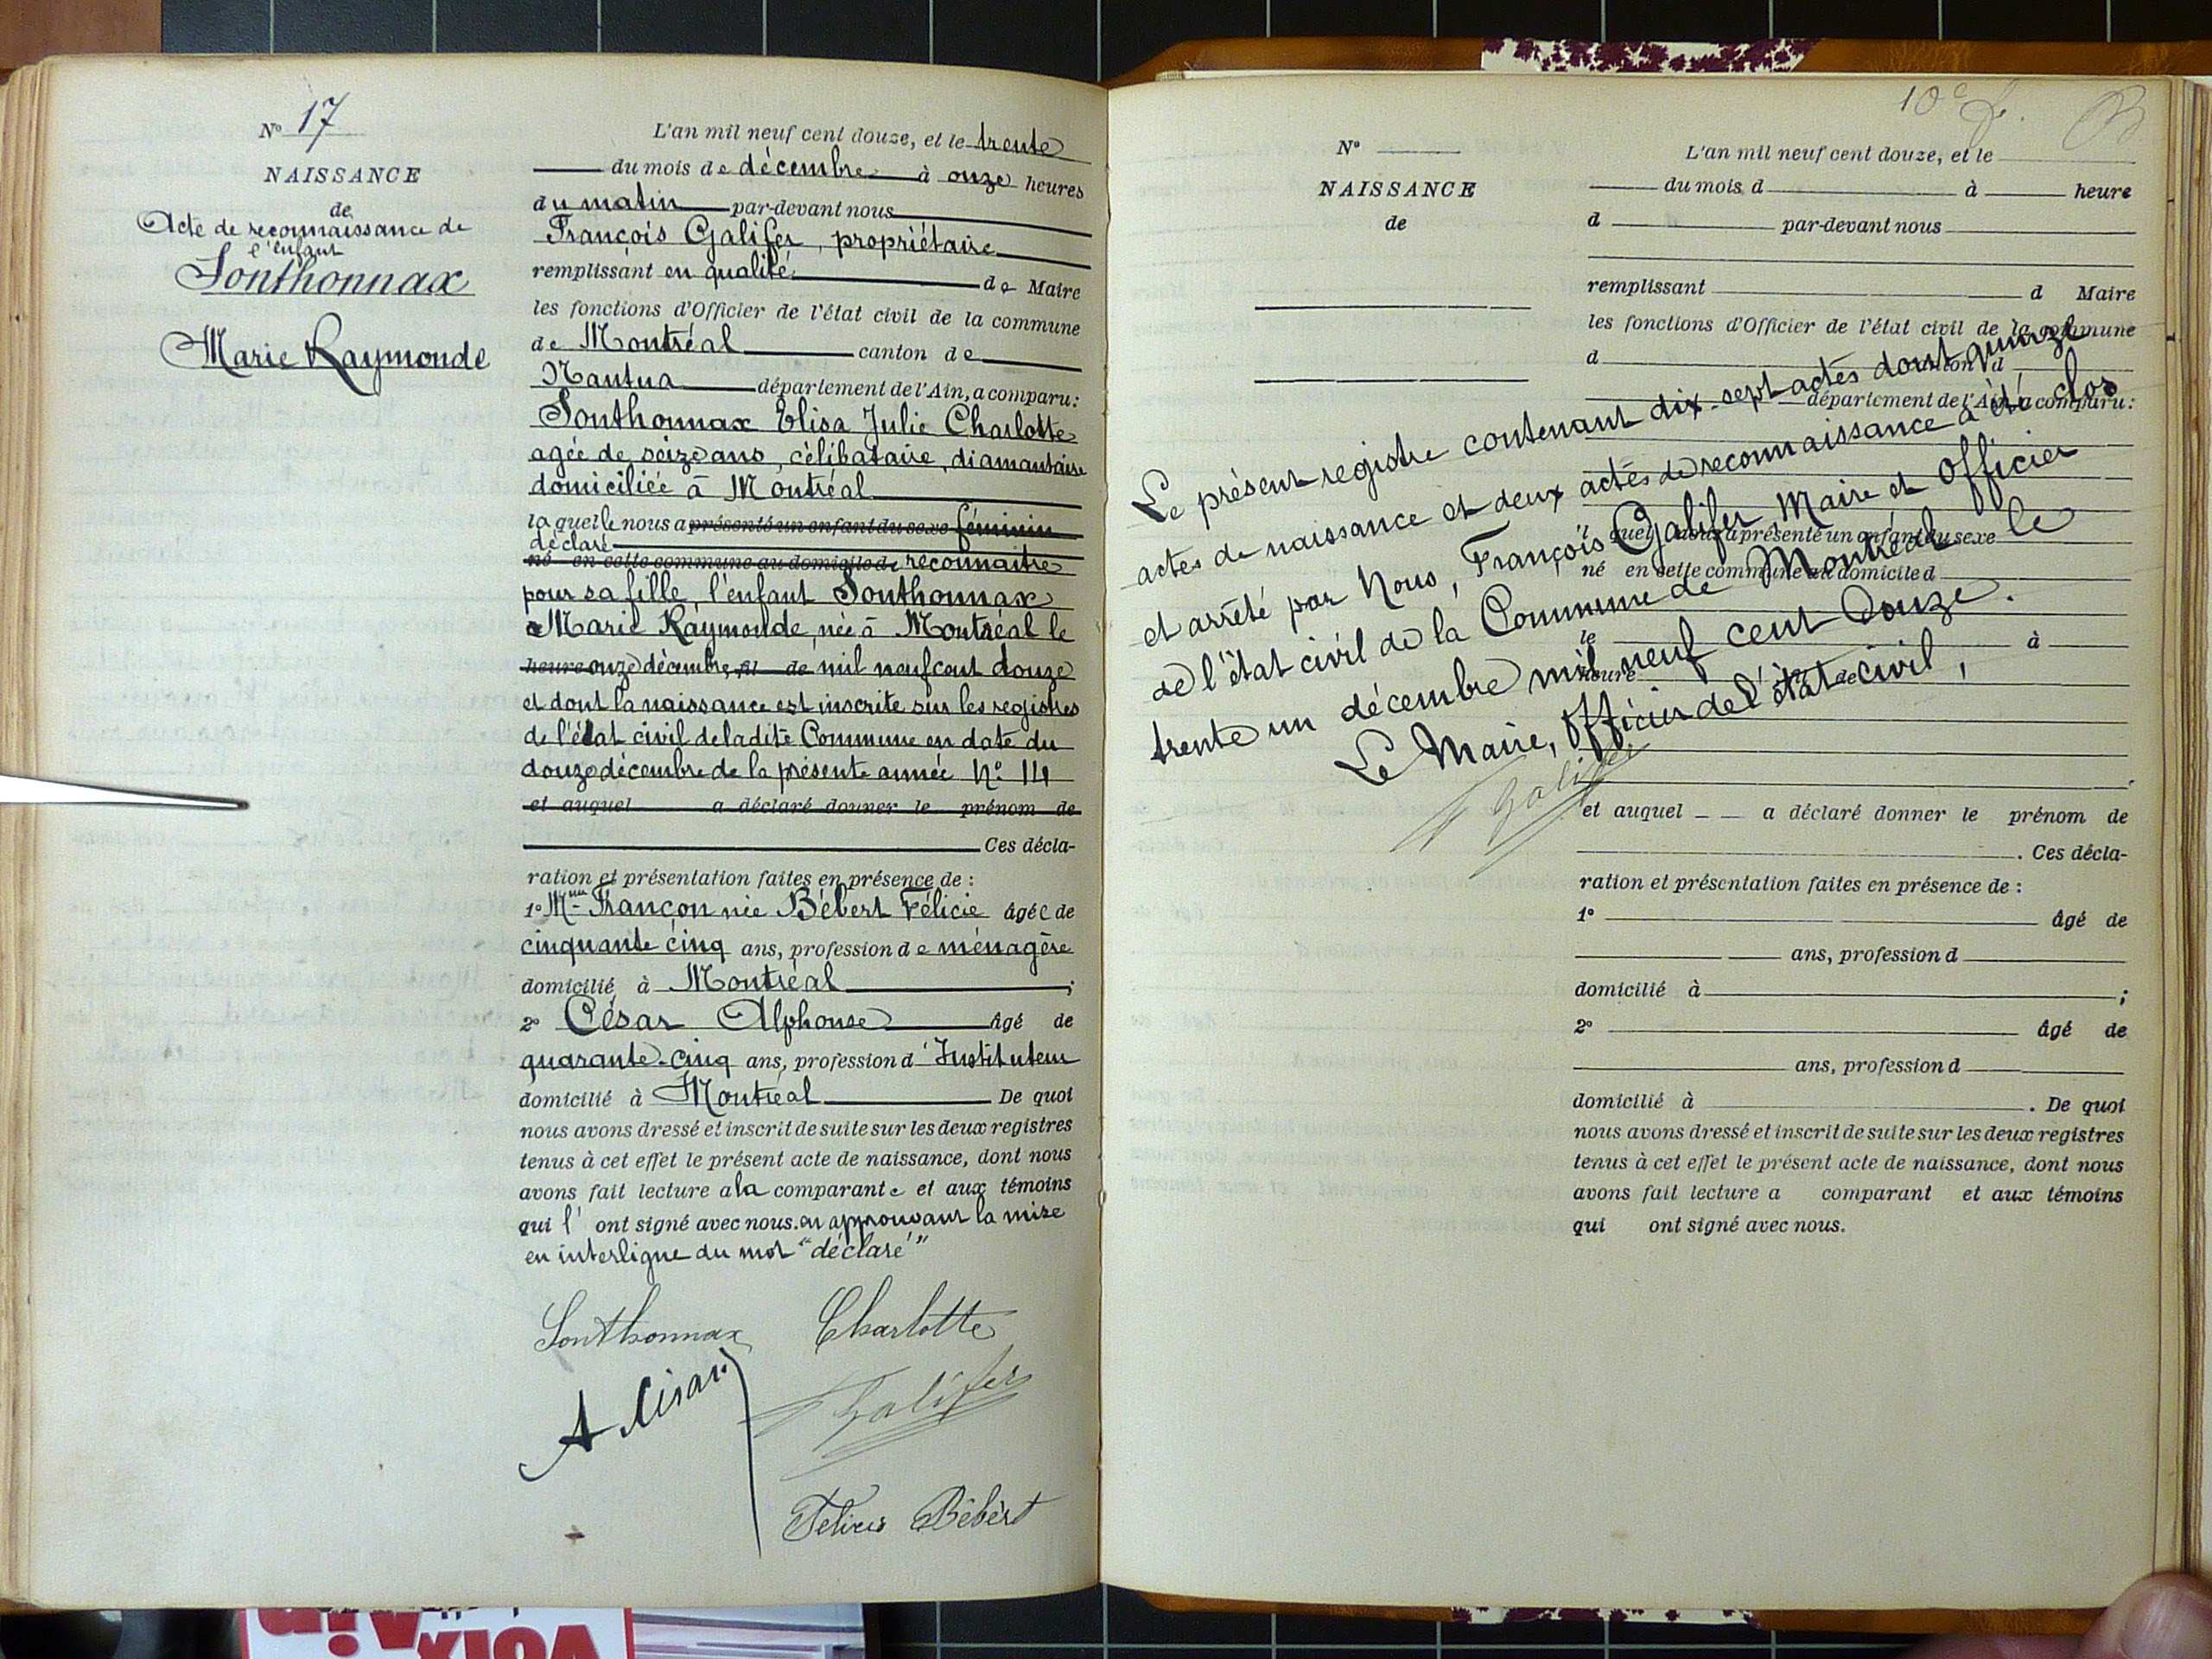 N° 17
NAISSANCE
de
Acte de reconnaissance de
l'enfant
Sonthonnax
Marie Raymonde
L'an mil neuf cent douze, et le trente
du mois de décembre à onze heures
du matin par-devant nous
François Galifer, propriétaire
remplissant en qualité de Maire
les fonctions d'Officier de l'état civil de la commune
de Montréal canton de
Nantua département de l'Ain, a comparu:
Sonthonnax Elisa Julie Charlotte
agée de seize ans, célibataire, diamantaire
domiciliée à Montréal
laquelle nous a présenté un enfant du sexe féminin
déclaré
né en cette commune au domicile de reconnaitre
pour sa fille, l'enfant Sonthonnax
Marie Raymonde née à Montréal le
heure onze décembre, et de mil neuf cent douze
et dont la naissance est inscrite sur les registres
de l'état civil de ladite Commune en date du
douze décembre de la présente année N° 14
et auquel a déclaré donner le prénom de
Ces décla-
ration et présentation faites en présence de :
1° Mme Françon née Bébert Félicie âgée de
cinquante cinq ans, profession de ménagère
domicilié à Montréal ;
2° César Alphonse âgé de
quarante-cinq ans, profession d'Instituteur
domicilié à Montréal De quoi
nous avons dressé et inscrit de suite sur les deux registres
tenus à cet effet le présent acte de naissance, dont nous
avons fait lecture a la comparante et aux témoins
qui l' ont signé avec nous. en approuvant la mise
en interligne du mot "déclaré"
Sonthonnax Charlotte
A César
Galifer
Félicie Bébert
10e f.
N°
NAISSANCE
de
L'an mil neuf cent douze, et le
du mois d à heure
d par-devant nous
remplissant d Maire
les fonctions d'Officier de l'état civil de la commune
d canton d
département de l'Ain, a comparu:
Le présent registre contenant dix-sept actes dont quinze
actes de naissance et deux actes de reconnaissance a été clos
et arrêté par Nous, François Galifer Maire et Officier
de l'état civil de la Commune de Montréal le
trente un décembre mil neuf cent douze.
Le Maire, Officier de l'état civil,
Galifer
quel nous a présenté un enfant du sexe
né en cette commune au domicile d
le à
heure
et auquel a déclaré donner le prénom de
. Ces décla-
ration et présentation faites en présence de :
1° âgé de
ans, profession d
domicilié à ;
2° âgé de
ans, profession d
domicilié à . De quoi
nous avons dressé et inscrit de suite sur les deux registres
tenus à cet effet le présent acte de naissance, dont nous
avons fait lecture a comparant et aux témoins
qui ont signé avec nous.